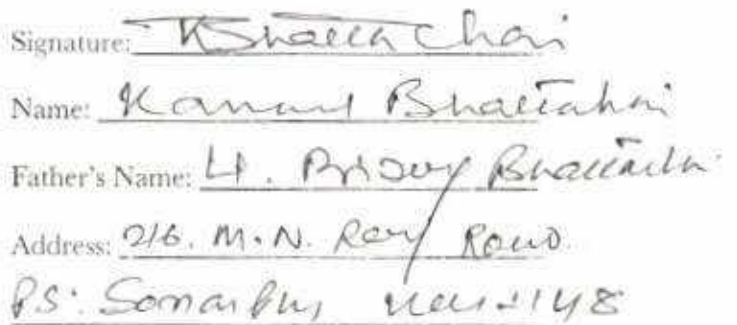 Signature: K Bhattachari
Name: Kamal Bhattachari
Father's Name: Lt. Bhattachari
Address: 216. M.N. Roy Road
P.S: Sonarpur 148